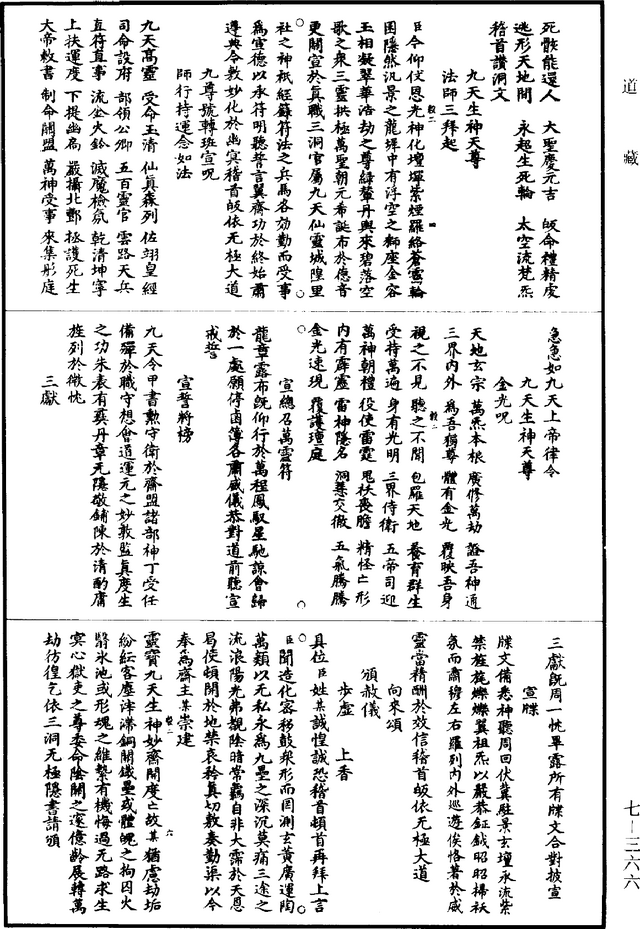 道藏
死骸能還人　大聖慶元吉　皈命禮精虔
逃形天地間　永超生死輪　太空流梵炁
稽首讚洞文
九天生神天尊
法師三拜起
臣今仰伏恩光神化壇墠紫煙羅絡蒼雲輪
囷隱然汎景之龍埋中有浮空之獅座金容
玉相凝翠華浩劫之尊綠輦丹輿來碧落空
歌之衆三靈拱極萬聖朝元希誕布於德音
更闢宣於真職三洞官屬九天仙靈城隍里
社之神祇經籙符法之兵馬各効勤而受事
爲宣德以承符明聽誓言翼齋功於終始肅
遵典令教妙化於幽冥稽首皈依无極大道
九尊號轉班宣呪
師行持運念如法
九天高靈　受命玉清　仙真森列　佐翊皇經
司命設府　部領公卿　五百靈官　雲路天兵
直符直事　流金火鈴　滅魔檢氛　乾清坤寧
上扶運度　下提幽扃　嚴攝北酆　極護死生
大帝敕書　制命關盟　萬神受事　來集彤庭
急急如九天上帝律令
九天生神天尊
金光呪
天地玄宗　萬炁本根　廣修萬劫　證吾神通
三界內外　爲吾獨尊　體有金光　覆映吾身
視之不見　聽之不聞　包羅天地　養育群生
受持萬遍　身有光明　三界侍衛　五帝司迎
萬神朝禮　役使雷霆　鬼妖喪膽　精怪亡形
內有霹靂　雷神隱名　洞慧交徹　五氣騰騰
金光速現　覆護壇庭
宣總召萬靈符
龍章露布旣仰行於萬程鳳馭星馳諒會歸
於一處願停鹵簿各肅威儀恭對道前聽宣
戒誓
宣誓將榜
九天令甲書勲守衛於齋盟諸部神丁受任
備殫於職守想會道運元之妙敦監真度生
之功朱表有奕丹章无隱敬鋪陳於清酌庸
旌列於微忱
三獻
三獻旣周一忱畢露所有牒文合對披宣
宣牒
牒文備悉神聽周回伏冀駐景玄壇永流紫
禁旌旄爍爍翼祖炁以嚴恭鉦鉞昭昭掃祅
氛而肅穆左右羅列內外巡遊俟恪著於咸
靈當精酬於效信稽首皈依无極大道
向來頌
頒赦儀
步虛　上香
具位臣姓某誠惶誠恐稽首頓首再拜上言
臣聞造化密移鼓衆形而罔測玄黃廣運陶
萬類以无私永爲九壘之深沉莫痛三途之
流浪陽光弗覩陰暗常羈自非大霈於天恩
曷使頓開於地禁哀矜真切敷奏勤渠以今
奉爲齋主某崇建
靈寶九天生神妙齋開度亡故某猶慮劫垢
紛紜客塵淬滯銅關鐵壘或體魄之拘囚火
翳氷池或形魂之維縶有機悔過无路求生
冥心獄吏之尊委命陰關之邃億齡展轉萬
劫彷徨乞依三洞无極隱書請頒
七—三六六